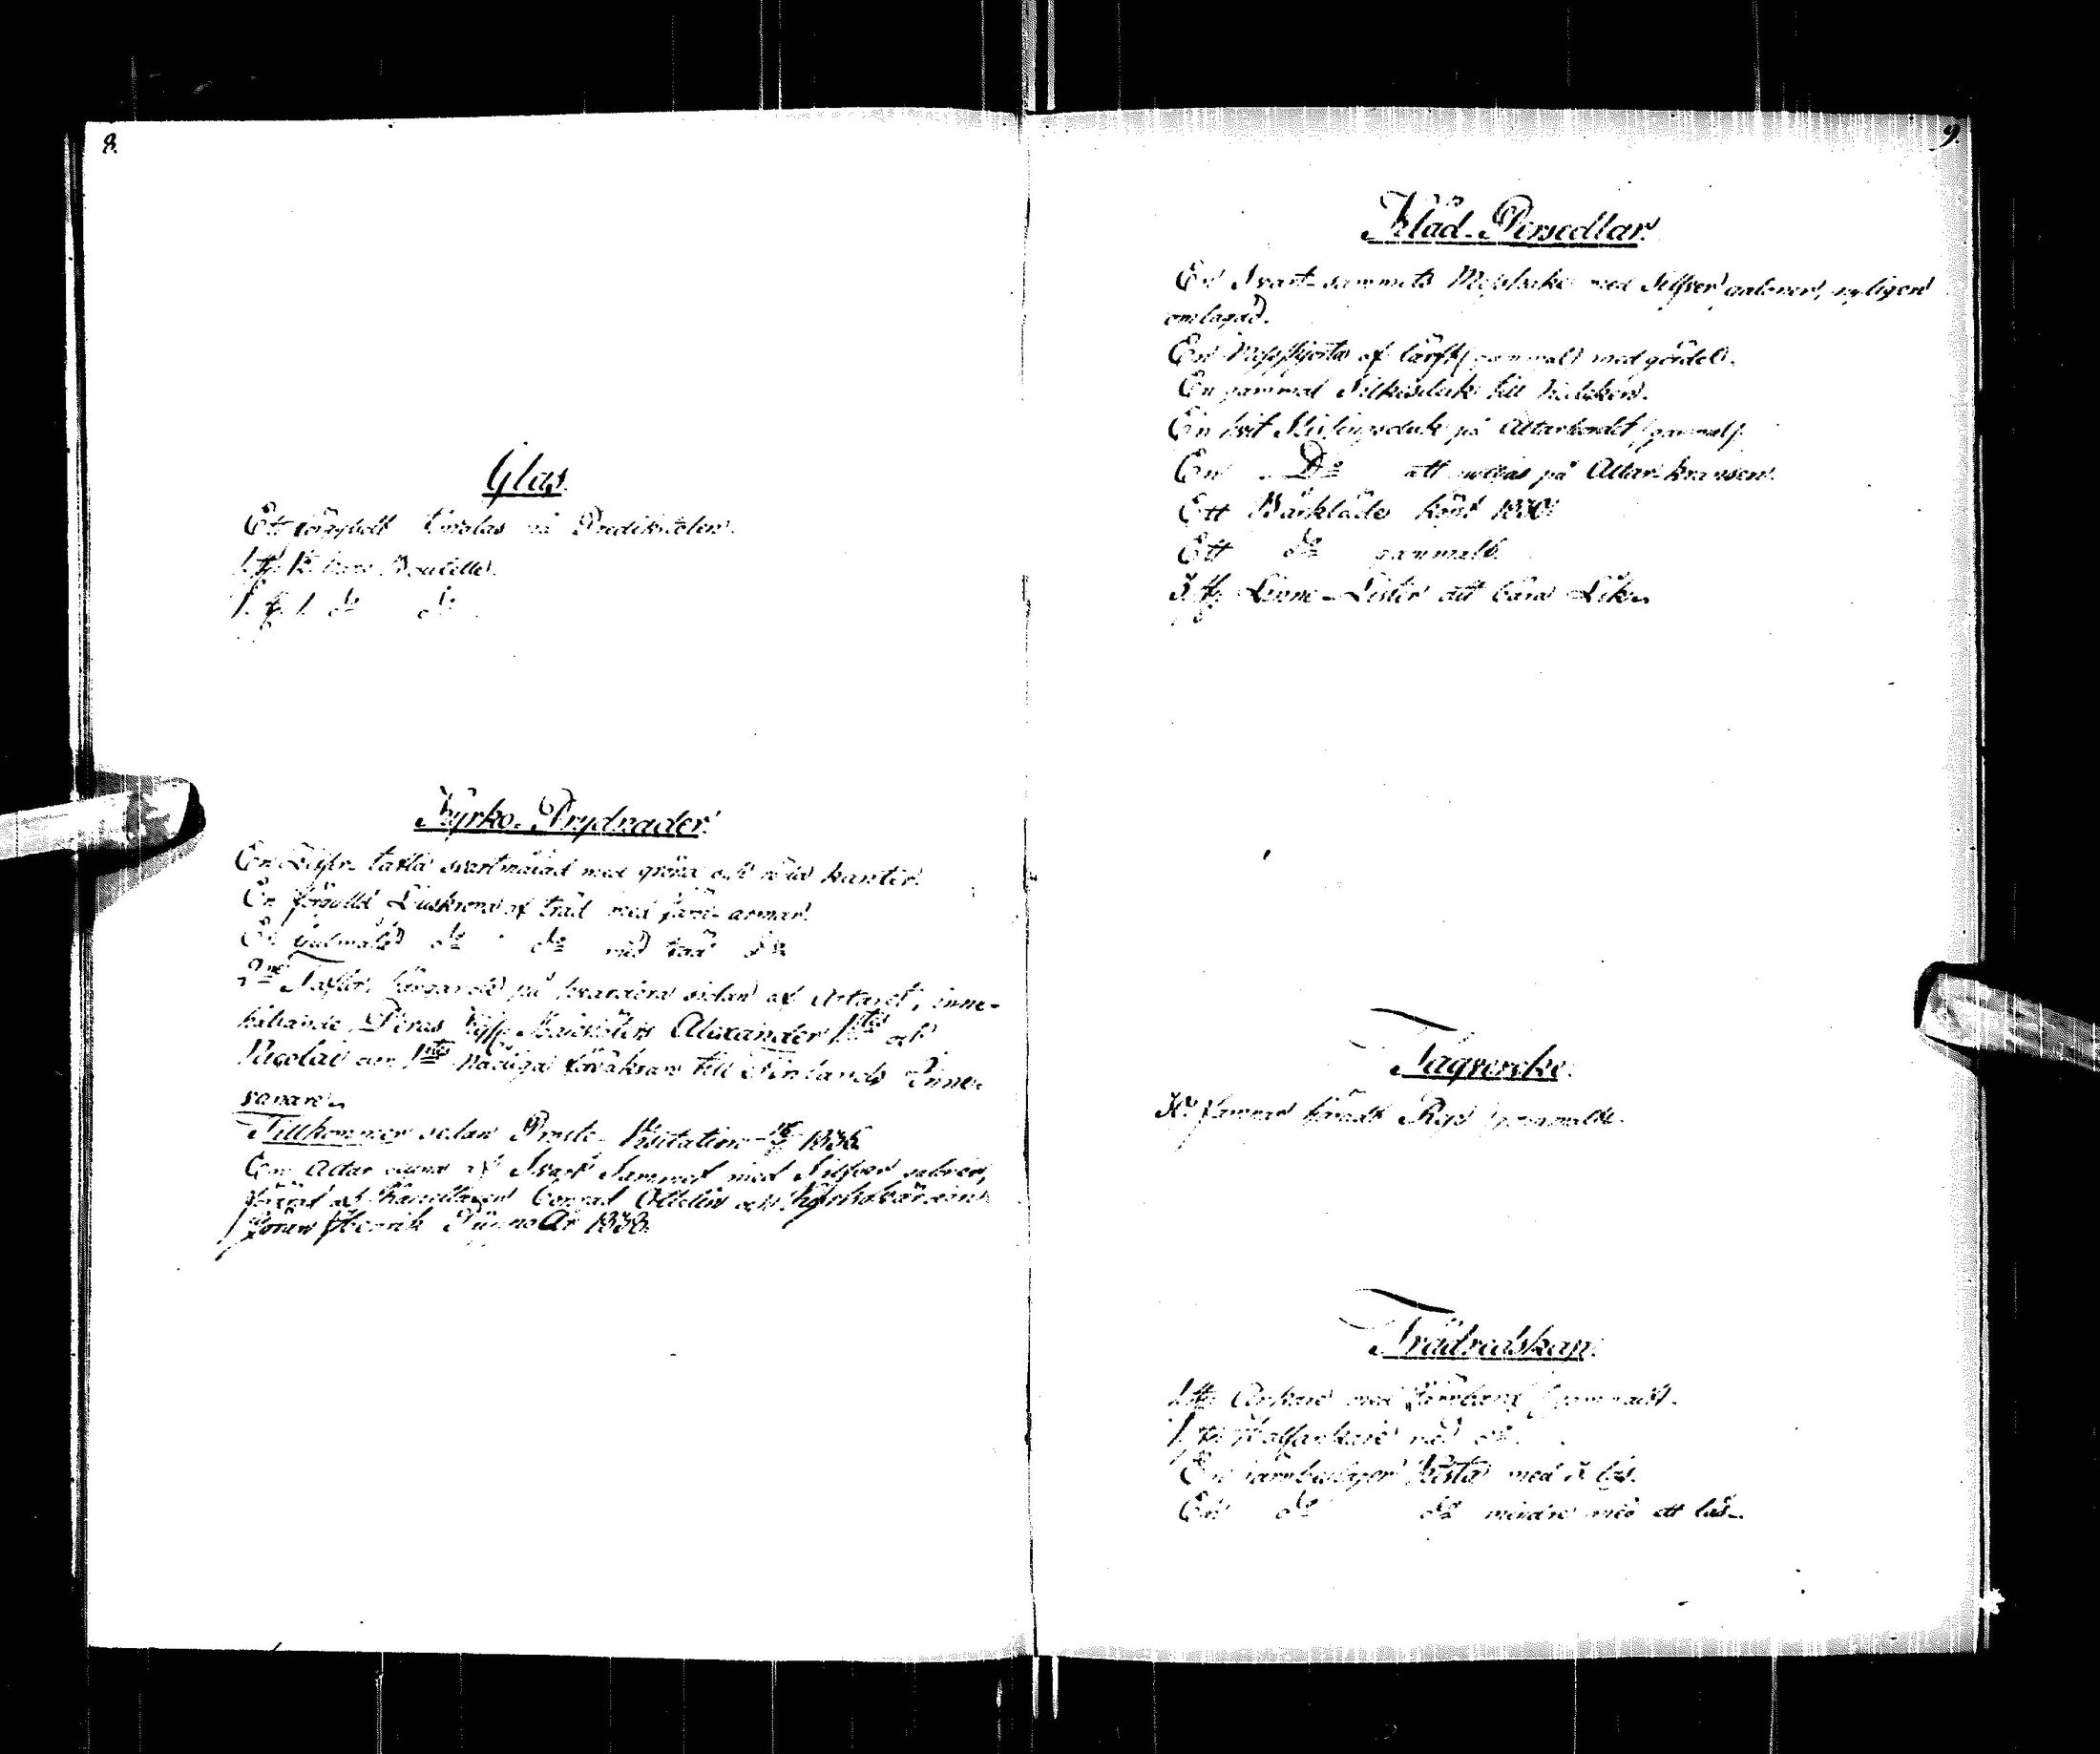 8.
Glas.
Ett förgyldt timglas på Predikstolen.
1. st. Bouteille.
1. st. 1. do do
Kyrko-Prydnader.
En Siffer-tafla svartmålad med gröna och röda kanter.
En förgylld Liuskrona af träd med armar.
En gulmålad do do med trä do
2ne Taflor, hängande på hvardera sidan af Altaret, inne-
hållande Deras Kejs. Majestäters Alexander 1stes och
Nicolai den 1stes Nådiga försäkran till Finlands Inne-
vånare.
Tillkommer sedan Prosts-Visitation 1836.
En Altar af Svart Sammet med Silfver galoner,
skänkt af Handlanden Conrad Ottelin och Kyrkovärden
Jöran Henrik År 1838.
9.
Kläd-Persedlar.
En Svart-sammets Messhake med Silfver galoner, nyligen
omlagad.
En Messskjorta af lärft (gammal) med gördel.
En gammal Silkesduk till kalken.
En hvit duk på Altarbordet (gammal).
En Do att nyttjas på Altar-kransen.
Ett Bårkläde köpt 1830.
Ett do gammalt.
3. st. Linne-Lister att bära Lik.
Tågvercke.
famnar Rep (gammalt).
Trädredskap.
1. st. Ankare med Järnband (gammalt).
1. st. Halfankare med do.
En järnbeslagen Kista med 2 lås.
En do do mindre med ett lås.